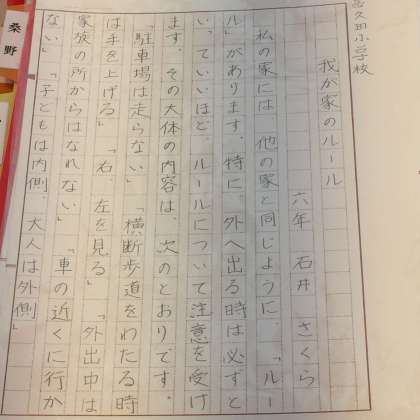 喜久田小学校
我が家のルール
六年 石井 さくら
私の家には、他の家と同じように、「ルー
ル」があります。特に、外へ出る時は必ずと
い、ていいほど、ルールについて注意を受け
ます。その大体の内容は、次のとおりです。
「駐車場は走らない」「横断歩道をわたる時
は手を上げる」「右、左を見る」「外出中は
家族の所からはなれない」「車の近くに行か
ない」「子どもは内側、大人は外側」
桑野